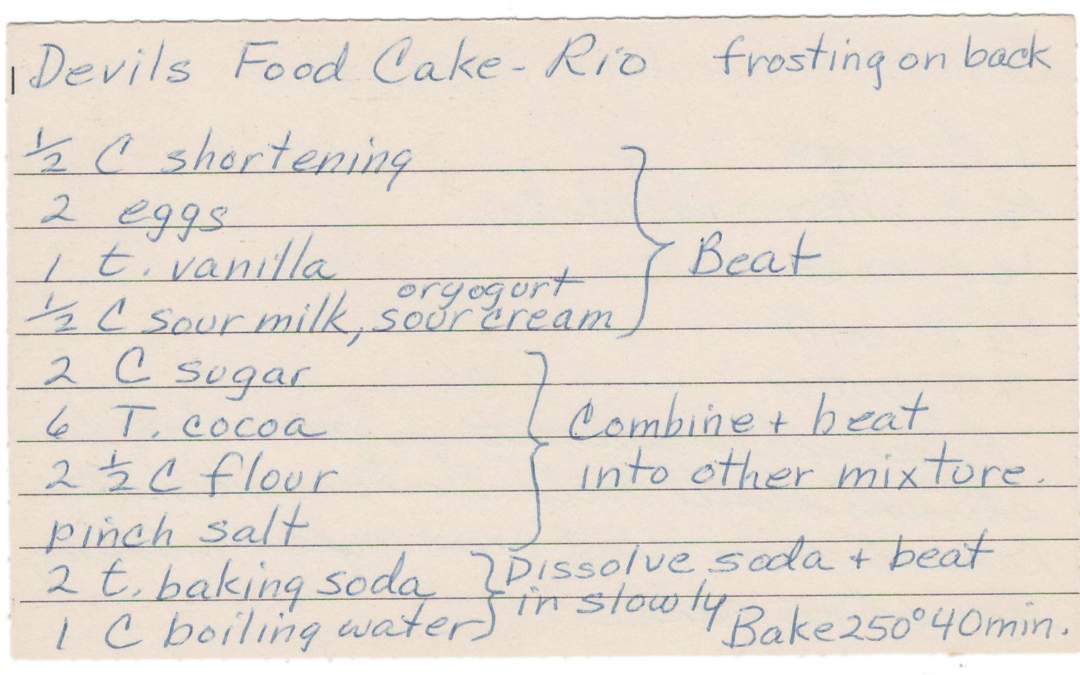 Devils Food Cake - Rio frosting on back
½ C shortening
2 eggs
1 t. vanilla
Beat
or yogurt
½ C sour milk, sour cream
2 C sugar
6 T. cocoa
Combine + beat
2 ½ C flour
into other mixture.
pinch salt
2 t. baking soda
Dissolve soda + beat
in slowly
1 C boiling water
Bake 250° 40 min.